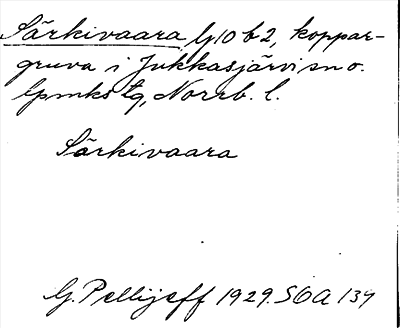 Särkivaara, G10 b2, koppar-
gruva i Jukkasjärvi sn o.
lpmks tg, Norrb. l.
Särkivaara
G. Pellijeff 1929. SOA 134